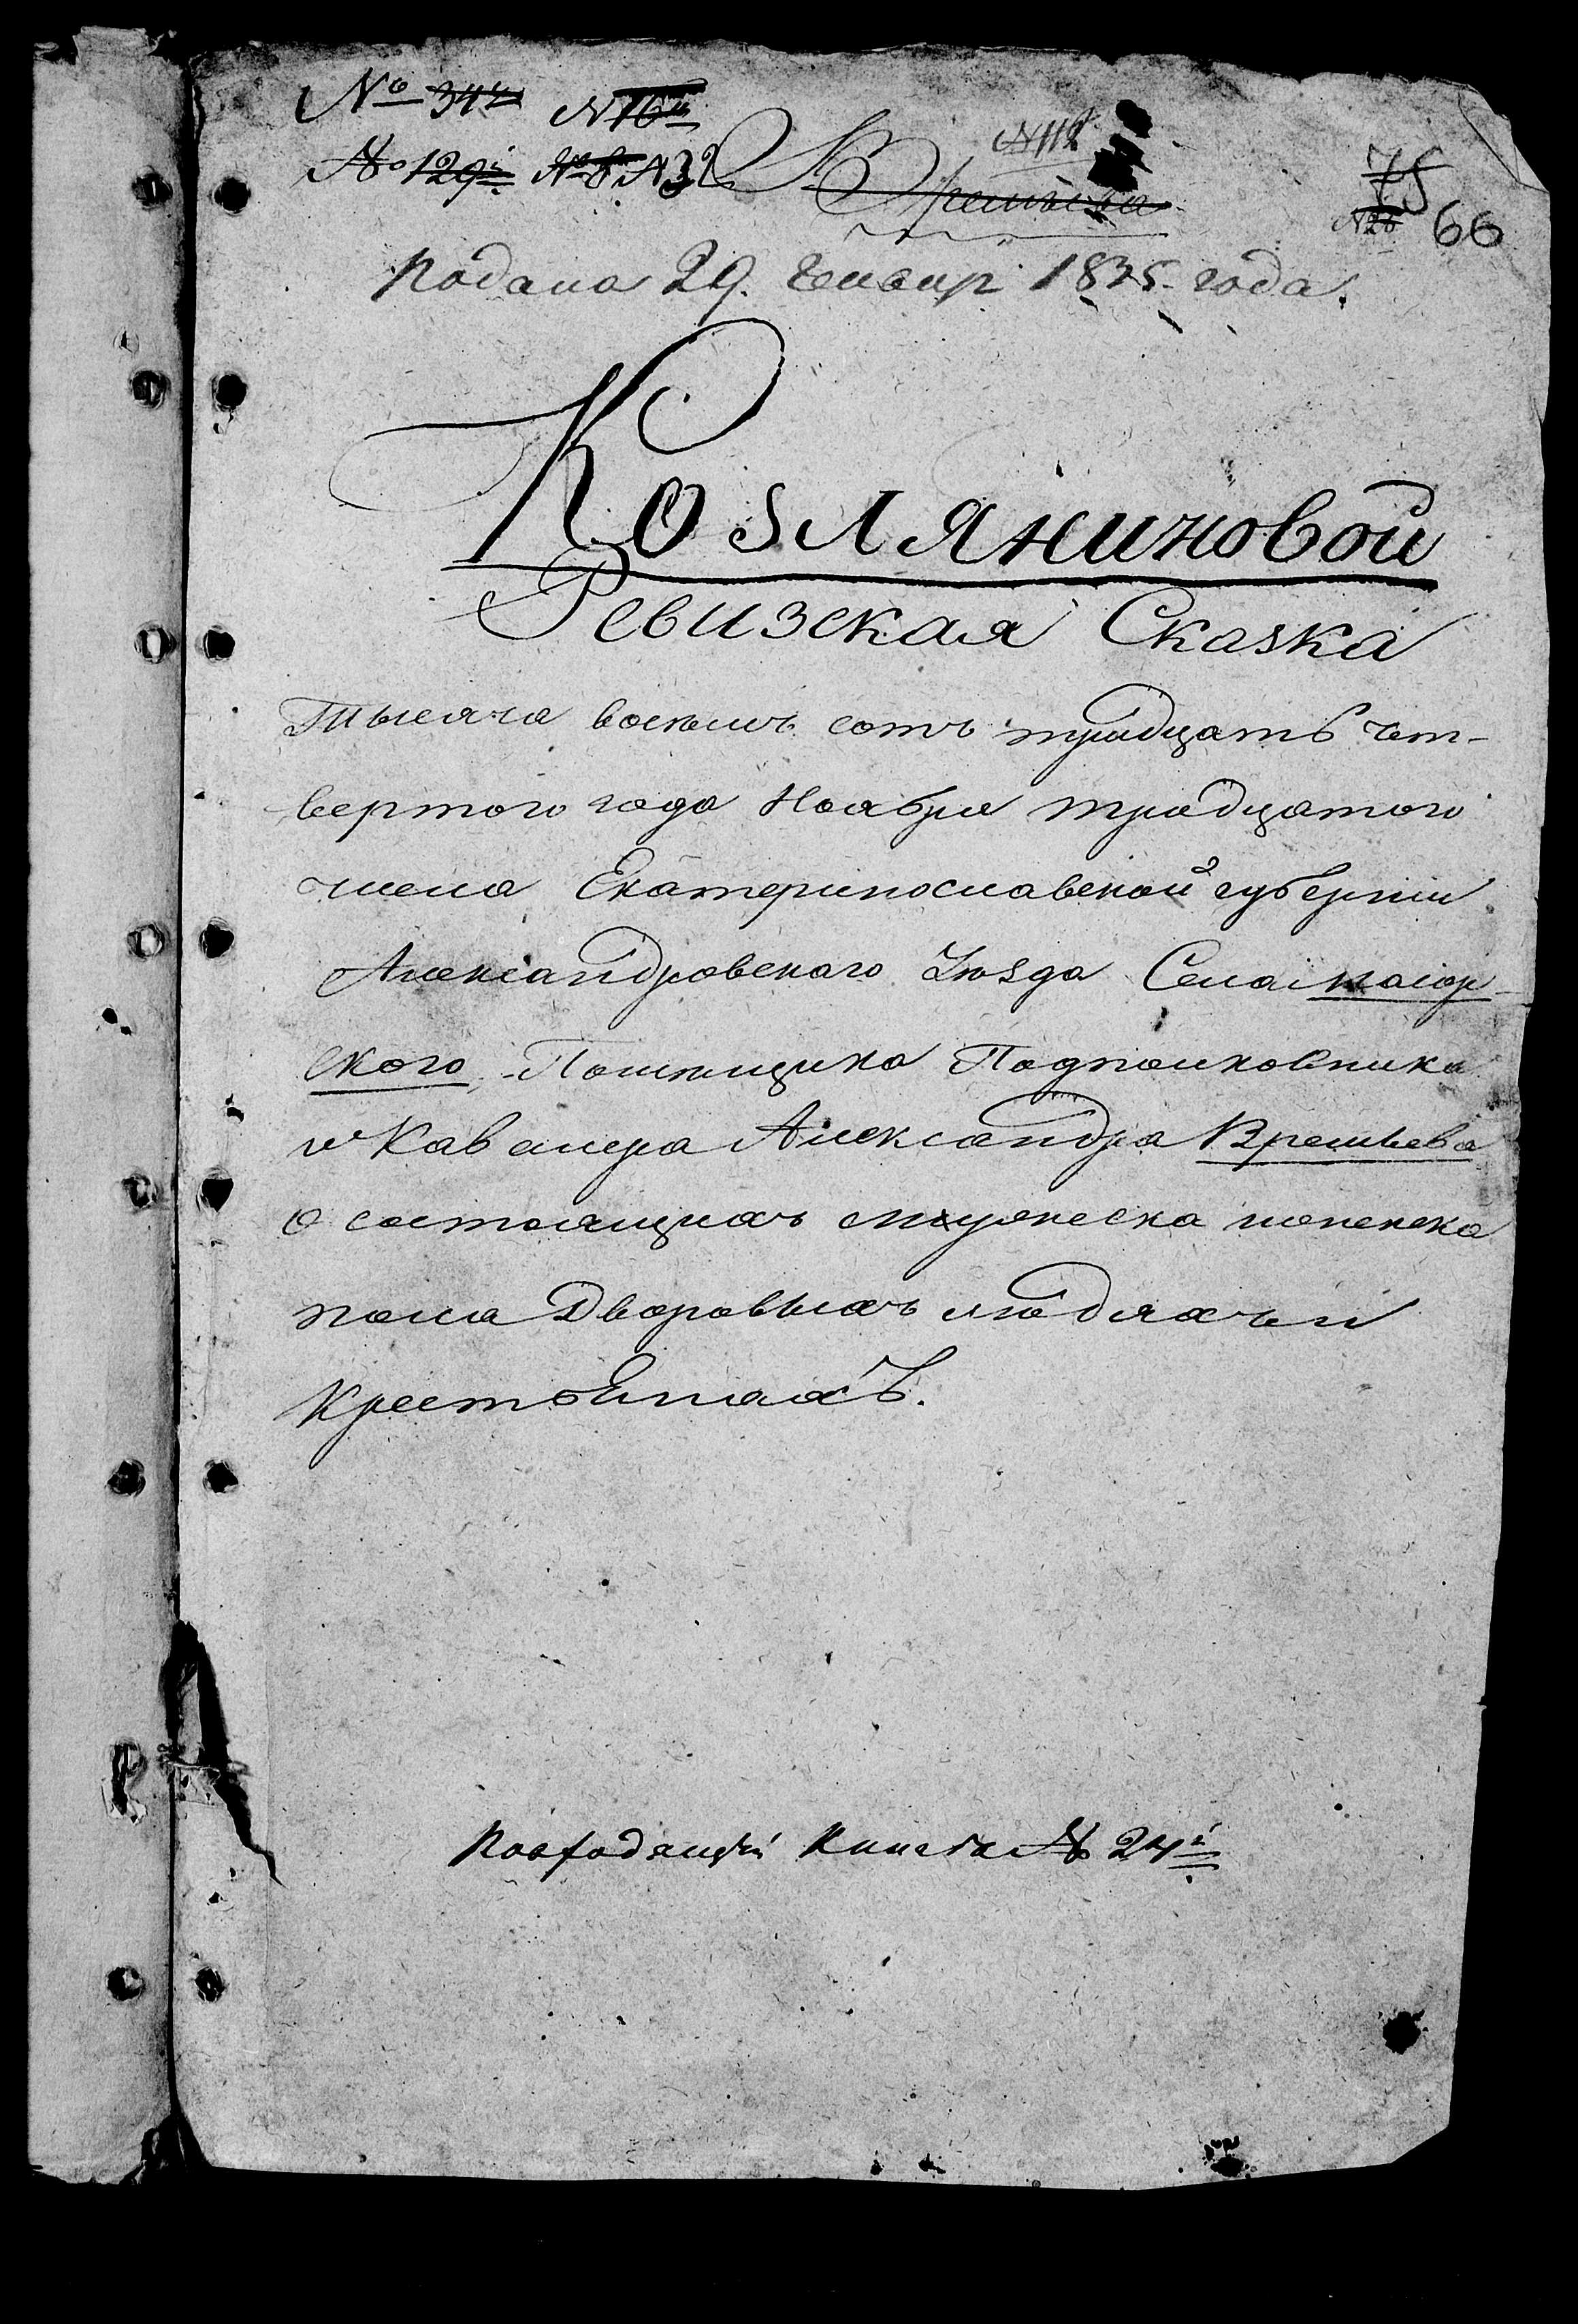 № 34й N 16й N 112
№ 129й № 8й N 32 Времьева 75
N 28 66
Подана 29. Генвар 1835. года.
Козляниновой
Ревизская Сказка
Тысяча восемь сотъ тридцать чет-
вертого года Ноября тридцатого
числа Екатеринославской губернии
Александровскаго Уѣзда Села маіор-
ского, Помѣщика Подполковника
и Кавалера Александра Времьева
о состоящихъ мужеска и женска
пола Дворовыхъ людяхъ и
крестьянахъ.
По входящей Книги № 24й